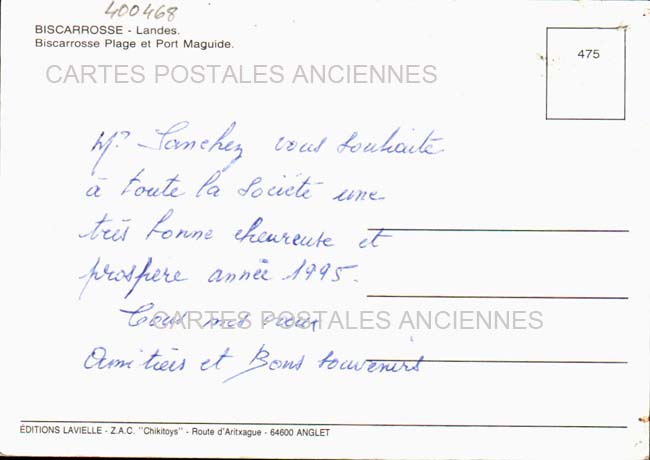 400468
BISCARROSSE - Landes.
Biscarrosse Plage et Port Maguide.
475
CARTES POSTALES ANCIENNES
Mr Sanchez vous souhaite
à toute la société une
très bonne eheureuse et
prospère année 1995.
Tous mes vœux
CARTES POSTALES ANCIENNES
Amitiés et Bons souvenirs
ÉDITIONS LAVIELLE - Z.A.C. "Chikitoys" - Route d'Aritxague - 64600 ANGLET